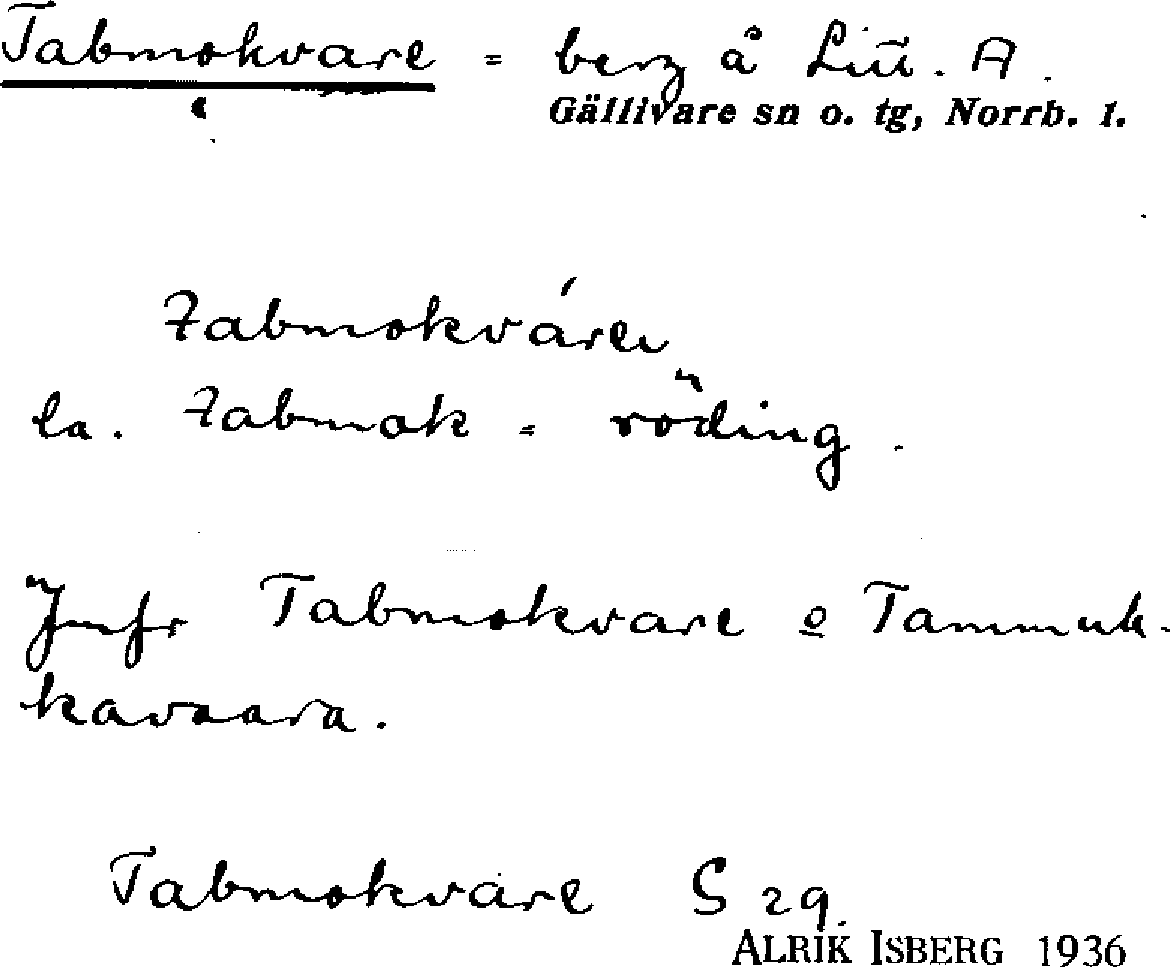 Tabmokvare = berg å Lið. A.
Gällivare sn o. tg, Norrb. l.
Tabmokvárev
la. tabmok = röding.
Jmfr Tabmokvare o Tammuk-
kavaara.
Tabmokvare S 29.
ALRIK ISBERG 1936